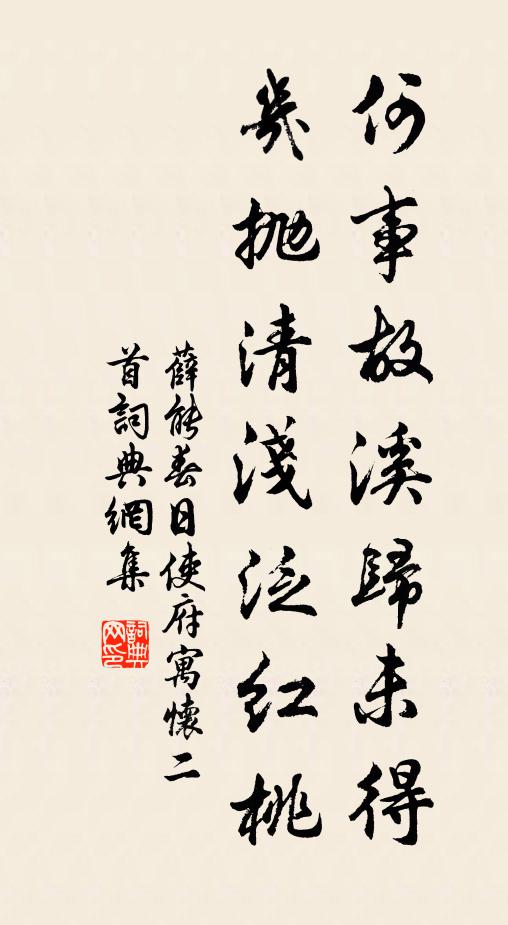 何事故溪歸未得
幾抛清淺泛紅桃
薛能春日使府寓懷二
首詞典網集
詞典網印